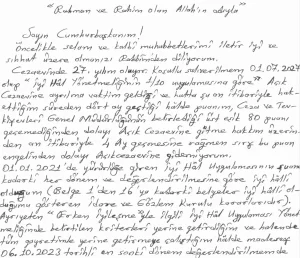 "Rahman ve Rahim olan Allah'ın adıyla"
Sayın Cumhurbaşkanım!
Öncelikle selam ve kalbi muhabbetlerimi iletir iyi ve
sıhhat üzere olmanızı Rabbimden diliyorum.
Cezaevinde 27. yılım oluyor. Koşullu salıverilmem 01.07.2027
olup "İyi Hâl Yönetmeliğinin 1/10 uygulamasına göre" Açık
Cezaevine ayrılma vaktim geldiği ve hatta şu an itibariyle hak-
ettiğim süreden dört ay geçtiği halde puanım, Ceza ve Tev-
kifevleri Genel Müdürlüğünün belirlediği üst eşik 80 puanı
geçemediğinden dolayı Açık Cezaevine gitme hakkım üzerin-
den an itibariyle 4 Ay geçmesine rağmen sırf bu puan
engelinden dolayı Açıkcezaevine gidemiyorum.
01.01.2021'de yürürlüğe giren İyi Hâl Uygulamasının şuana
kadarki her dönem ve değerlendirilmesine göre iyi hâlli
olduğum (Belge 1'den 16'ya kadarki belgeler iyi hâlli ol-
duğumu gösteren idare ve Gözlem Kurulu kararlarıdır).
Ayrıyeten "Erken İyileşme"yle ilgili İyi Hâl Uygulaması Yönet-
meliğinde belirtilen kriterleri yerine getirdiğim ve halende
tüm gayretimle yerine getirmeye çalıştığım halde maalesef
06.10.2023 tarihli en sonki dönem değerlendirilmemde